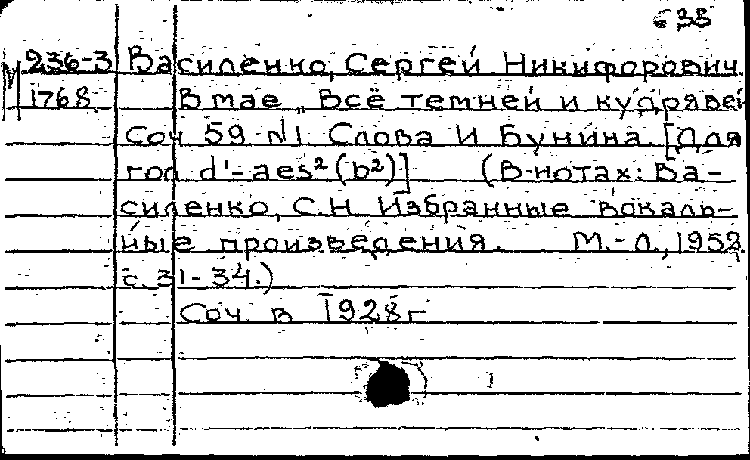 633
236-3 Василенко, Сергей Никифорович.
1768 В мае „Всё темней и кудрявей
Соч 59 №1 Слова И Бунина. [Для
гол d'-aes²(b²)] (В нотах: Ва-
силенко, С.Н Избранные вокаль-
ные произведения. М.-Л., 1952
с. 31-34.)
Соч. в 1928г